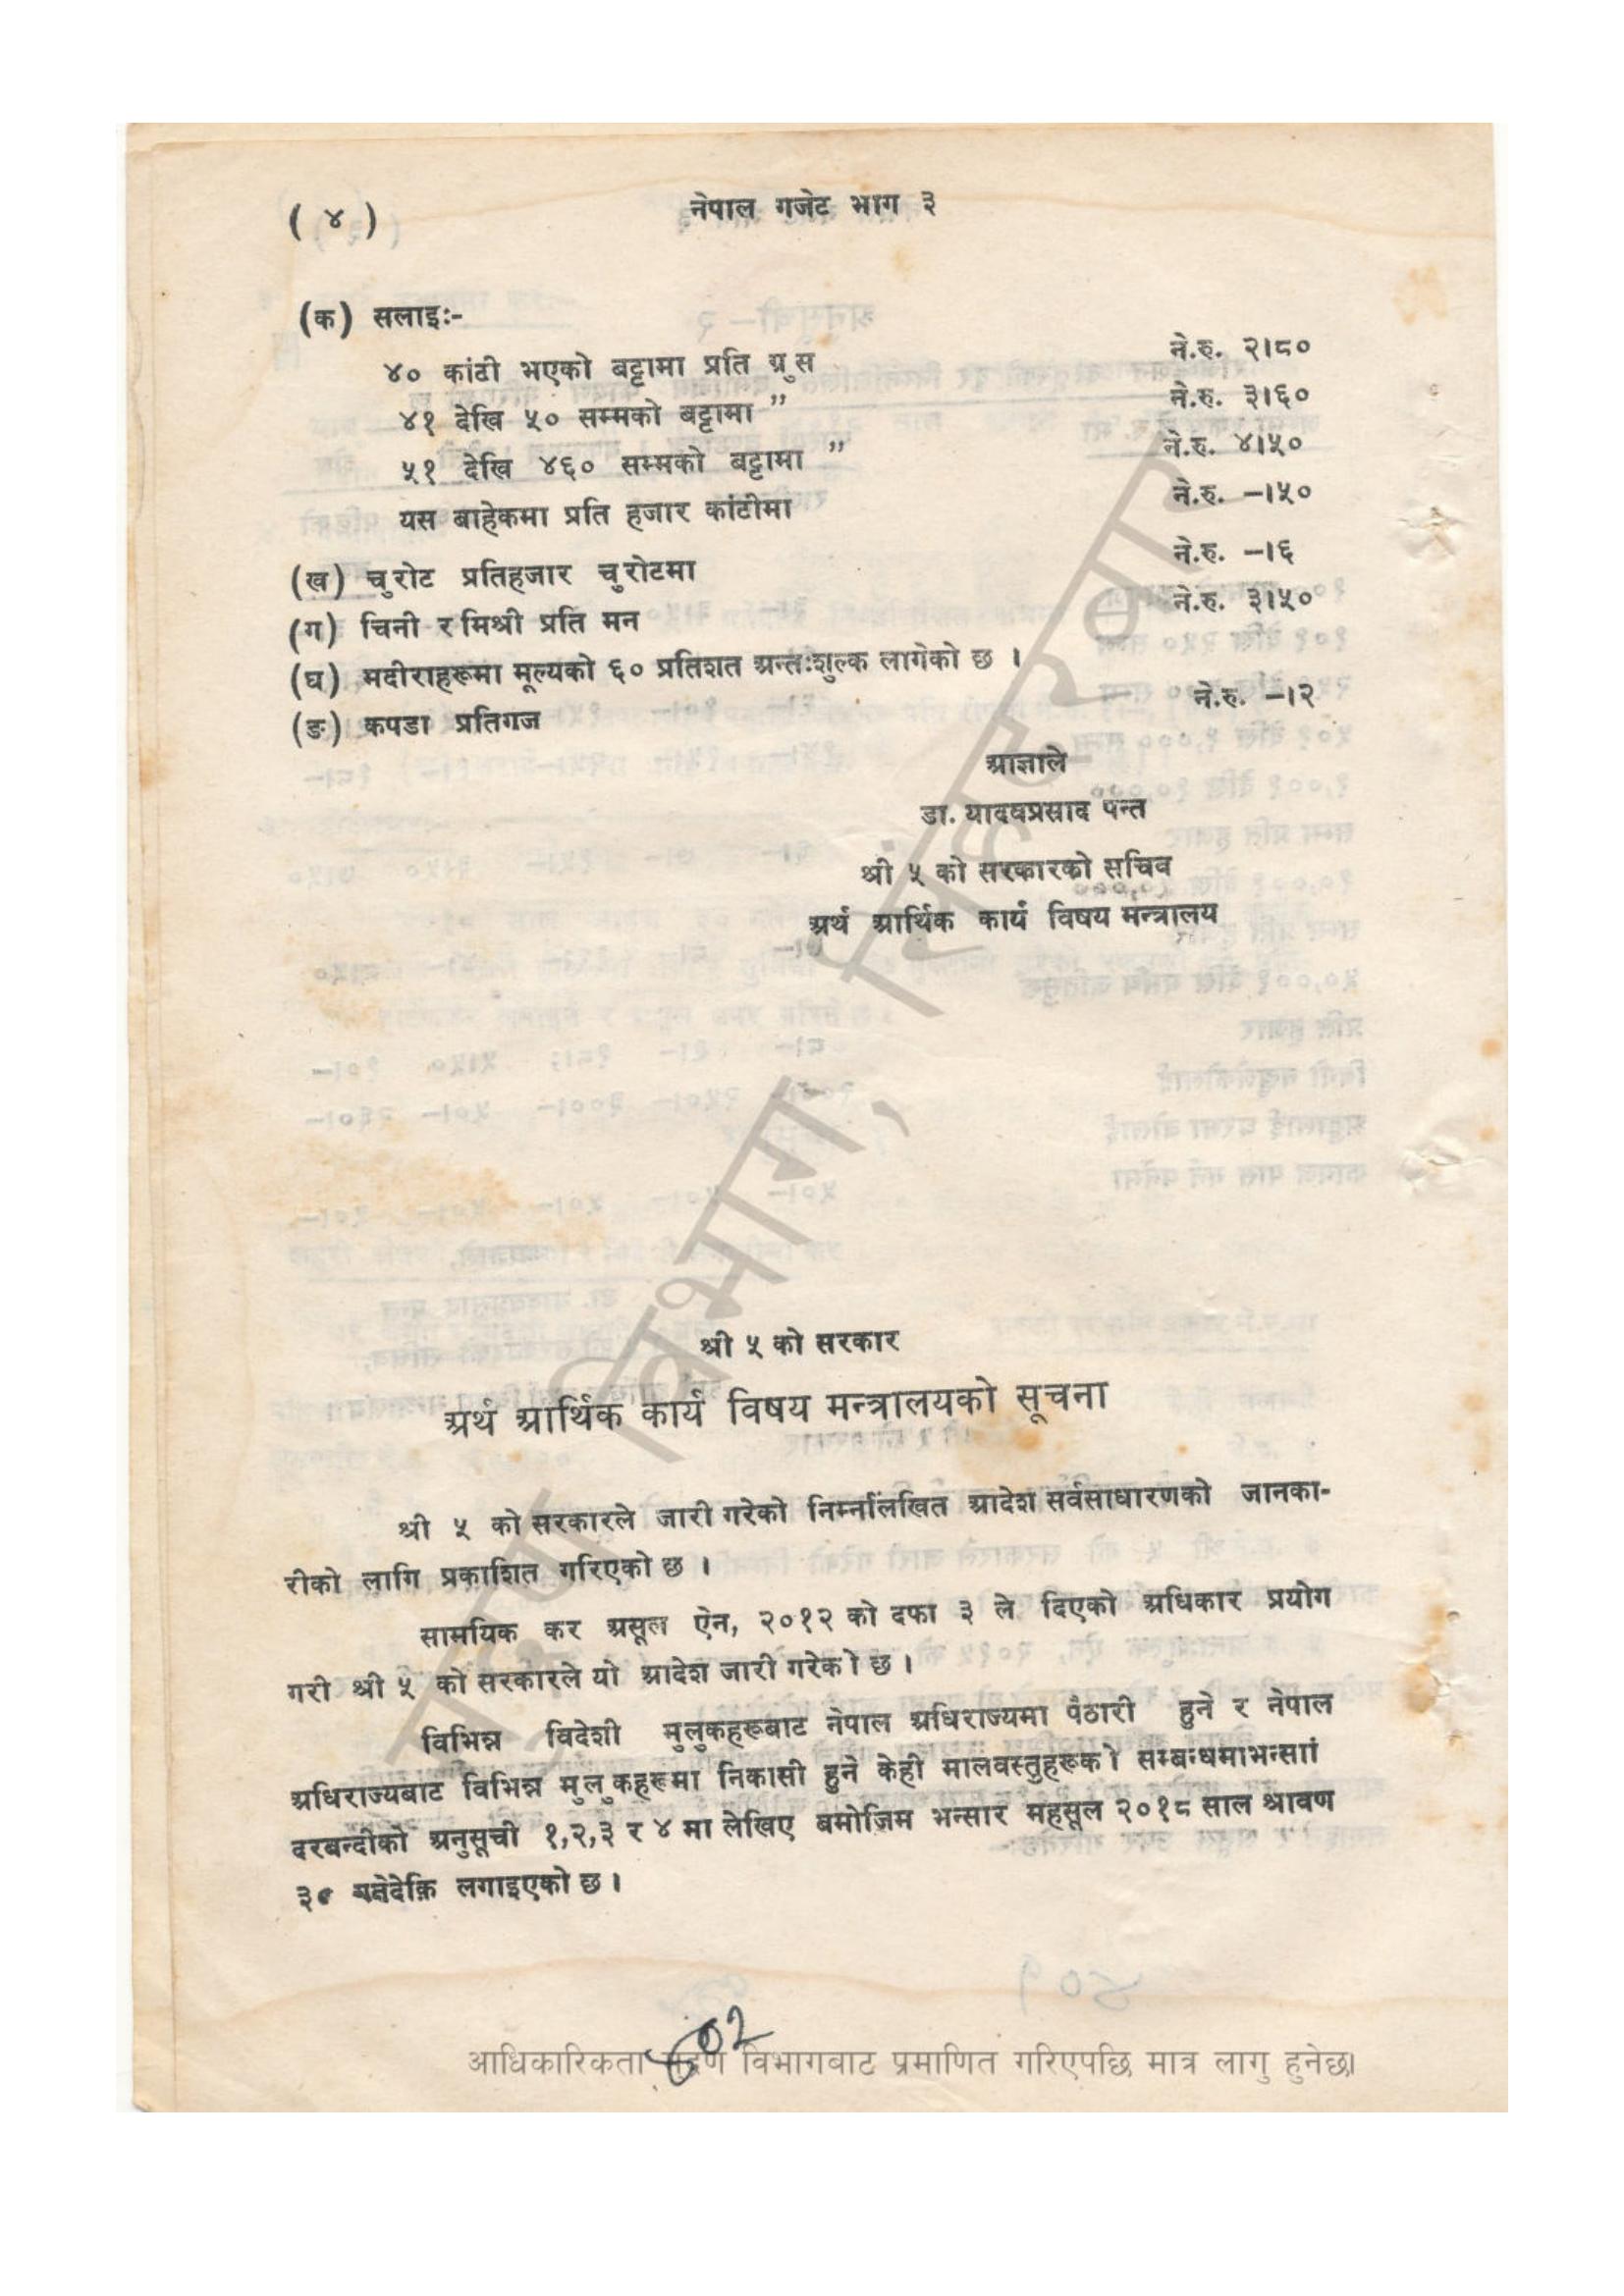 ( ४ )
नेपाल गजेट भाग ३
(क) सलाइः-
४० कांटी भएको बट्टामा प्रति ग्रुस ने.रु. २।८०
४१ देखि ५० सम्मको बट्टामा ” ने.रु. ३।६०
५१ देखि ४६० सम्मको बट्टामा ” ने.रु. ४।५०
यस बाहेकमा प्रति हजार कांटीमा ने.रु. –।५०
(ख) चुरोट प्रतिहजार चुरोटमा ने.रु. –।६
(ग) चिनी र मिश्री प्रति मन ने.रु. ३।५०
(घ) मदीराहरूमा मूल्यको ६० प्रतिशत अन्तःशुल्क लागेको छ ।
(ङ) कपडा प्रतिगज ने.रु. –।२
आज्ञाले
डा. यादवप्रसाद पन्त
श्री ५ को सरकारको सचिव
अर्थ आर्थिक कार्य विषय मन्त्रालय
श्री ५ को सरकार
अर्थ आर्थिक कार्य विषय मन्त्रालयको सूचना
श्री ५ को सरकारले जारी गरेको निम्नलिखित आदेश सर्वसाधारणको जानका-
रीको लागि प्रकाशित गरिएको छ ।
सामयिक कर असूल ऐन, २०१२ को दफा ३ ले दिएको अधिकार प्रयोग
गरी श्री ५ को सरकारले यो आदेश जारी गरेको छ ।
विभिन्न विदेशी मुलुकहरूबाट नेपाल अधिराज्यमा पैठारी हुने र नेपाल
अधिराज्यबाट विभिन्न मुलुकहरूमा निकासी हुने केही मालवस्तुहरूको सम्बन्धमाभन्सां
दरबन्दीको अनुसूची १,२,३ र ४ मा लेखिए बमोजिम भन्सार महसूल २०१८ साल श्रावण
लगाइएको छ ।
मुद्रण विभाग, सिंहदरवार
आधिकारिकता मुद्रण विभागबाट प्रमाणित गरिएपछि मात्र लागु हुनेछ।